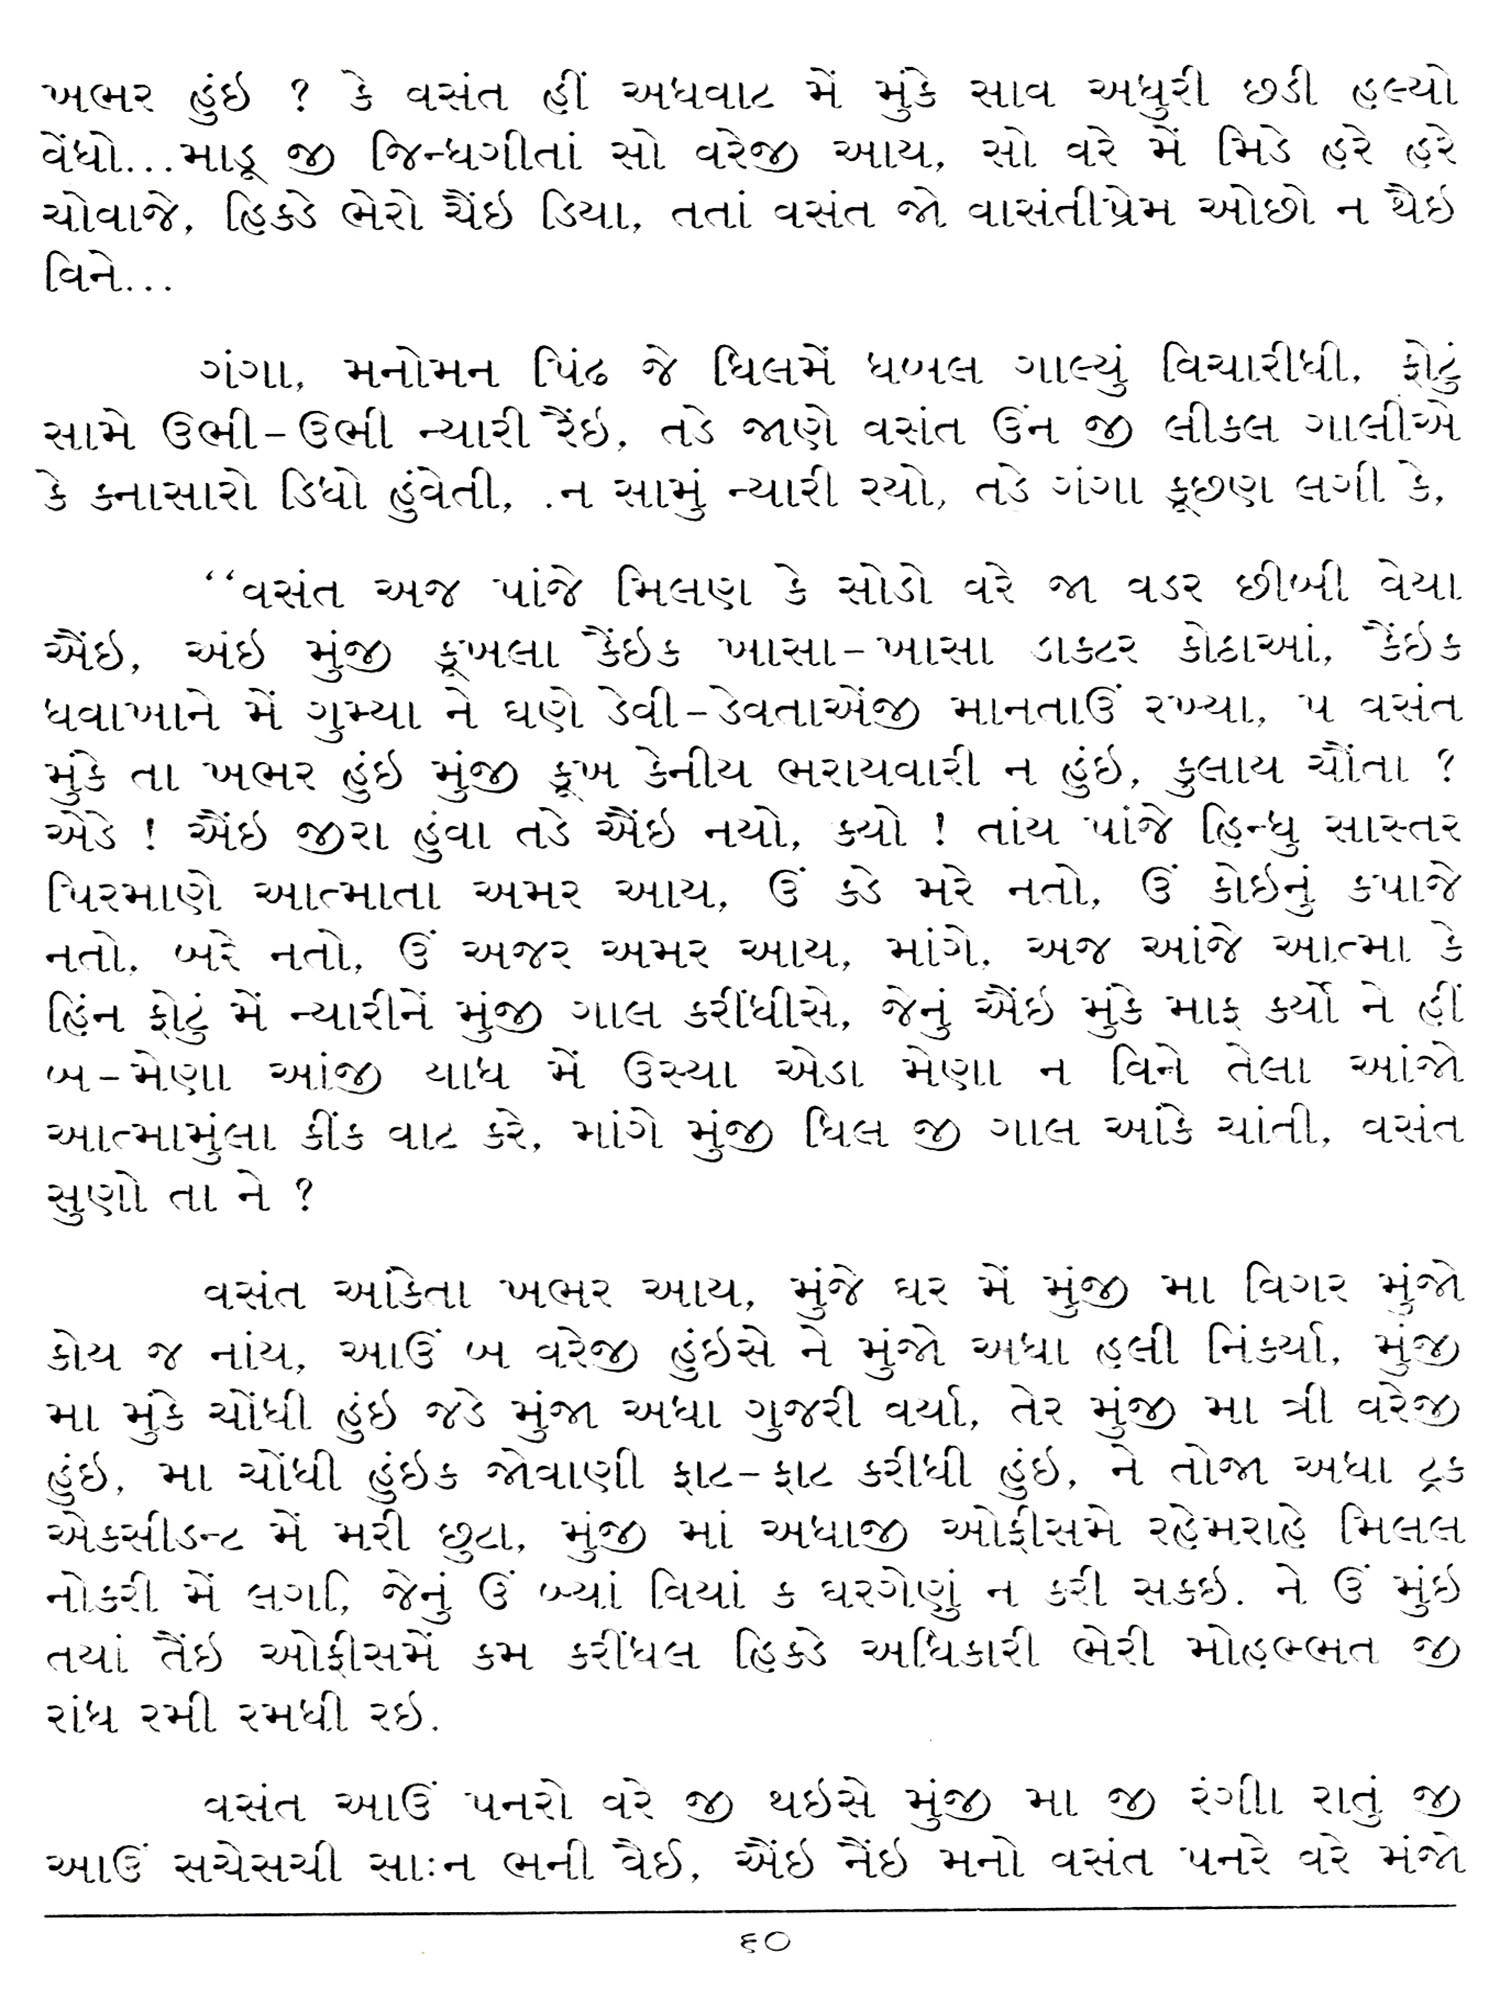 ખભર હુંઇ ? કે વસંત હીં અધવાટ મેં મુંકે સાવ અધુરી છડી હલ્યો
વેંધો...માડૂ જી જિન્ધગીતાં સો વરેજી આય, સો વરે મેં મિડે હરે હરે
ચોવાજે, હિકડે ભેરો ચૈંઇ ડિયા, તતાં વસંત જો વાસંતીપ્રેમ ઓછો ન થૈઇ
વિને...
ગંગા, મનોમન પિંઢ જે ધિલમેં ધબલ ગાલ્યું વિચારીધી, ફોટું
સામે ઉભી-ઉભી ન્યારી રૈંઇ, તડે જાણે વસંત ઉંન જી લીકલ ગાલીએ
કે ક્નાસારો ડિધો હુંવેતી, .ન સામું ન્યારી રયો, તડે ગંગા કૂછણ લગી કે,
‘‘વસંત અજ પાંજે મિલણ કે સોડો વરે જા વડર છીબી વેયા
ઐંઇ, અંઇ મુંજી કૂખલા કૈંઇક ખાસા-ખાસા ડાક્ટર કોઠાઆં, કૈંઇક
ધવાખાને મેં ગુમ્યા ને ઘણે ડેવી-ડેવતાએંજી માનતાઉં રખ્યા, પ વસંત
મુંકે તા ખભર હુંઇ મુંજી કૂખ કેનીય ભરાયવારી ન હુંઇ, કુલાય ચૌંતા ?
એડે ! ઐંઇ જીરા હુંવા તડે ઐંઇ નયો, ક્યો ! તાંય પાંજે હિન્ધુ સાસ્તર
પિરમાણે આત્માતા અમર આય, ઉં કડે મરે નતો, ઉં કોઇનું કપાજે
નતો, બરે નતો, ઉં અજર અમર આય, માંગે, અજ આંજે આત્મા કે
હિંન ફોટું મેં ન્યારીનેં મુંજી ગાલ કરીંધીસે, જેનું ઐંઇ મુંકે માફ કર્યો ને હીં
બ-મેણા આંજી યાધ મેં ઉસ્યા એડા મેણા ન વિને તેલા આંજો
આત્મામુંલા કીંક વાટ કરે, માંગે મુંજી ધિલ જી ગાલ આંકે ચાંતી, વસંત
સુણો તા ને ?
વસંત આંકેતા ખભર આય, મુંજે ઘર મેં મુંજી મા વિગર મુંજો
કોય જ નાંય, આઉં બ વરેજી હુંઇસે ને મુંજો અધા હલી નિંકર્યા, મુંજી
મા મુંકે ચોંધી હુંઇ જડે મુંજા અધા ગુજરી વર્યા, તેર મુંજી મા ત્રી વરેજી
હુંઇ, મા ચોંધી હુંઇક જોવાણી ફાટ-ફાટ કરીધી હુંઇ, ને તોજા અધા ટ્રક
એકસીડન્ટ મેં મરી છુટા, મુંજી માં અધાજી ઓફીસમે રહેમરાહે મિલલ
નોકરી મેં લગી, જેનું ઉં બ્યાં વિયાં ક ઘરગેણું ન કરી સકઇ. ને ઉં મુંઇ
તયાં તૈંઇ ઓફીસમેં કમ કરીંધલ હિકડે અધિકારી ભેરી મોહબ્ભત જી
રાંધ રમી રમધી રઇ.
વસંત આઉં પનરો વરે જી થઇસે મુંજી મા જી રંગીી રાતું જી
આઉં સચેસચી સાઃન ભની વૈઈ, ઐંઇ નૈંઇ મનો વસંત પનરે વરે મંજો
૬૦